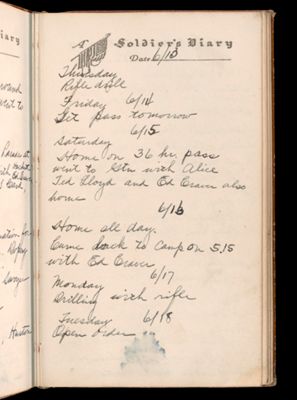 A Soldier's Diary
Date 6/13
Thursday
Rifle drill
Friday 6/14
Get pass tomorrow
6/15
Saturday
Home on 36 hr. pass
went to Gtn with Alice
Ted Lloyd and Ed Craver also
home
6/16
Home all day.
Came back to Camp on 5.15
with Ed Craver
6/17
Monday
Drilling with rifle
Tuesday 6/18
Open order